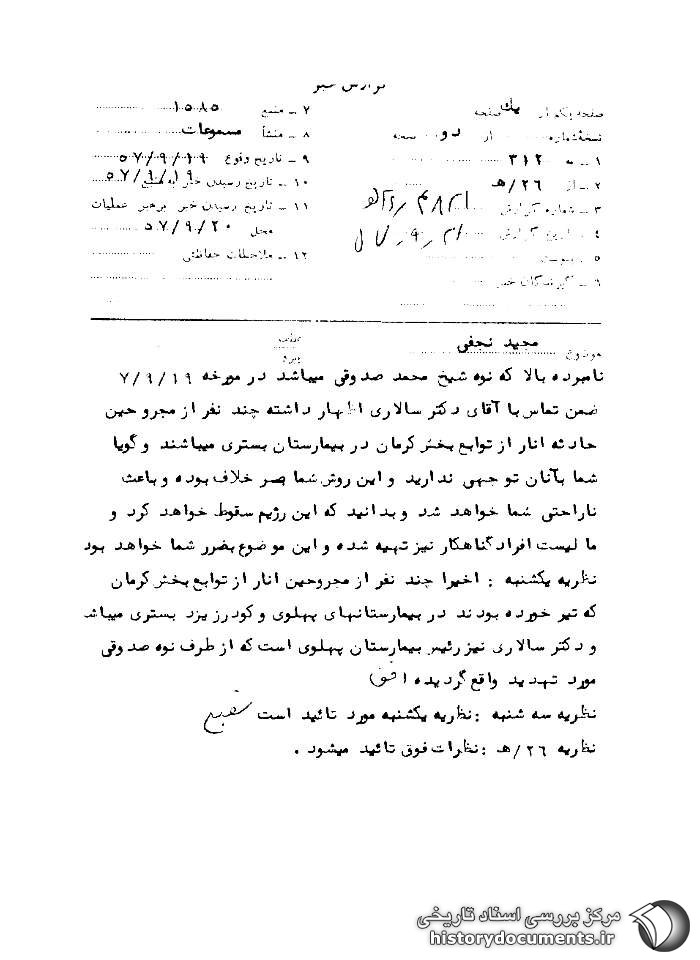 گزارش خبر
صفحه یکم از یک صفحه
نسخه شماره از دو نسخه
۱ - به ۳۱۲
۲ - از ۲۶/هـ
۳ - شماره گزارش
۴ - تاریخ گزارش
۵ - پیوست
۶ - گیرندگان خبر
۷ - منبع ۱۵۸۵
۸ - منشأ مسموعات
۹ - تاریخ وقوع ۵۷/۹/۱۹
۱۰ - تاریخ رسیدن خبر به منبع ۵۷/۹/۱۹
۱۱ - تاریخ رسیدن خبر برهبر عملیات
محل ۵۷/۹/۲۰
۱۲ - ملاحظات حفاظتی
موضوع مجید نجفی
عطف
پیرو
نامبرده بالا که نوه شیخ محمد صدوقی میباشد در مورخه ۷/۹/۱۹
ضمن تماس با آقای دکتر سالاری اظهار داشته چند نفر از مجروحین
حادثه انار از توابع بخش کرمان در بیمارستان بستری میباشند و گویا
شما بآنان توجهی ندارید و این روش شما بسر خلاف بوده و باعث
ناراحتی شما خواهد شد و بدانید که این رژیم سقوط خواهد کرد و
ما لیست افراد گناهکار نیز تهیه شده و این موضوع بضرر شما خواهد بود
نظریه یکشنبه : اخیرا چند نفر از مجروحین انار از توابع بخش کرمان
که تیر خورده بودند در بیمارستانهای پهلوی و کودرز یزد بستری میباشد
و دکتر سالاری نیز رئیس بیمارستان پهلوی است که از طرف نوه صدوقی
مورد تهدید واقع گردیده
نظریه سه شنبه : نظریه یکشنبه مورد تائید است
نظریه ۲۶/هـ : نظرات فوق تائید میشود .
مرکز بررسی اسناد تاریخی
historydocuments.ir